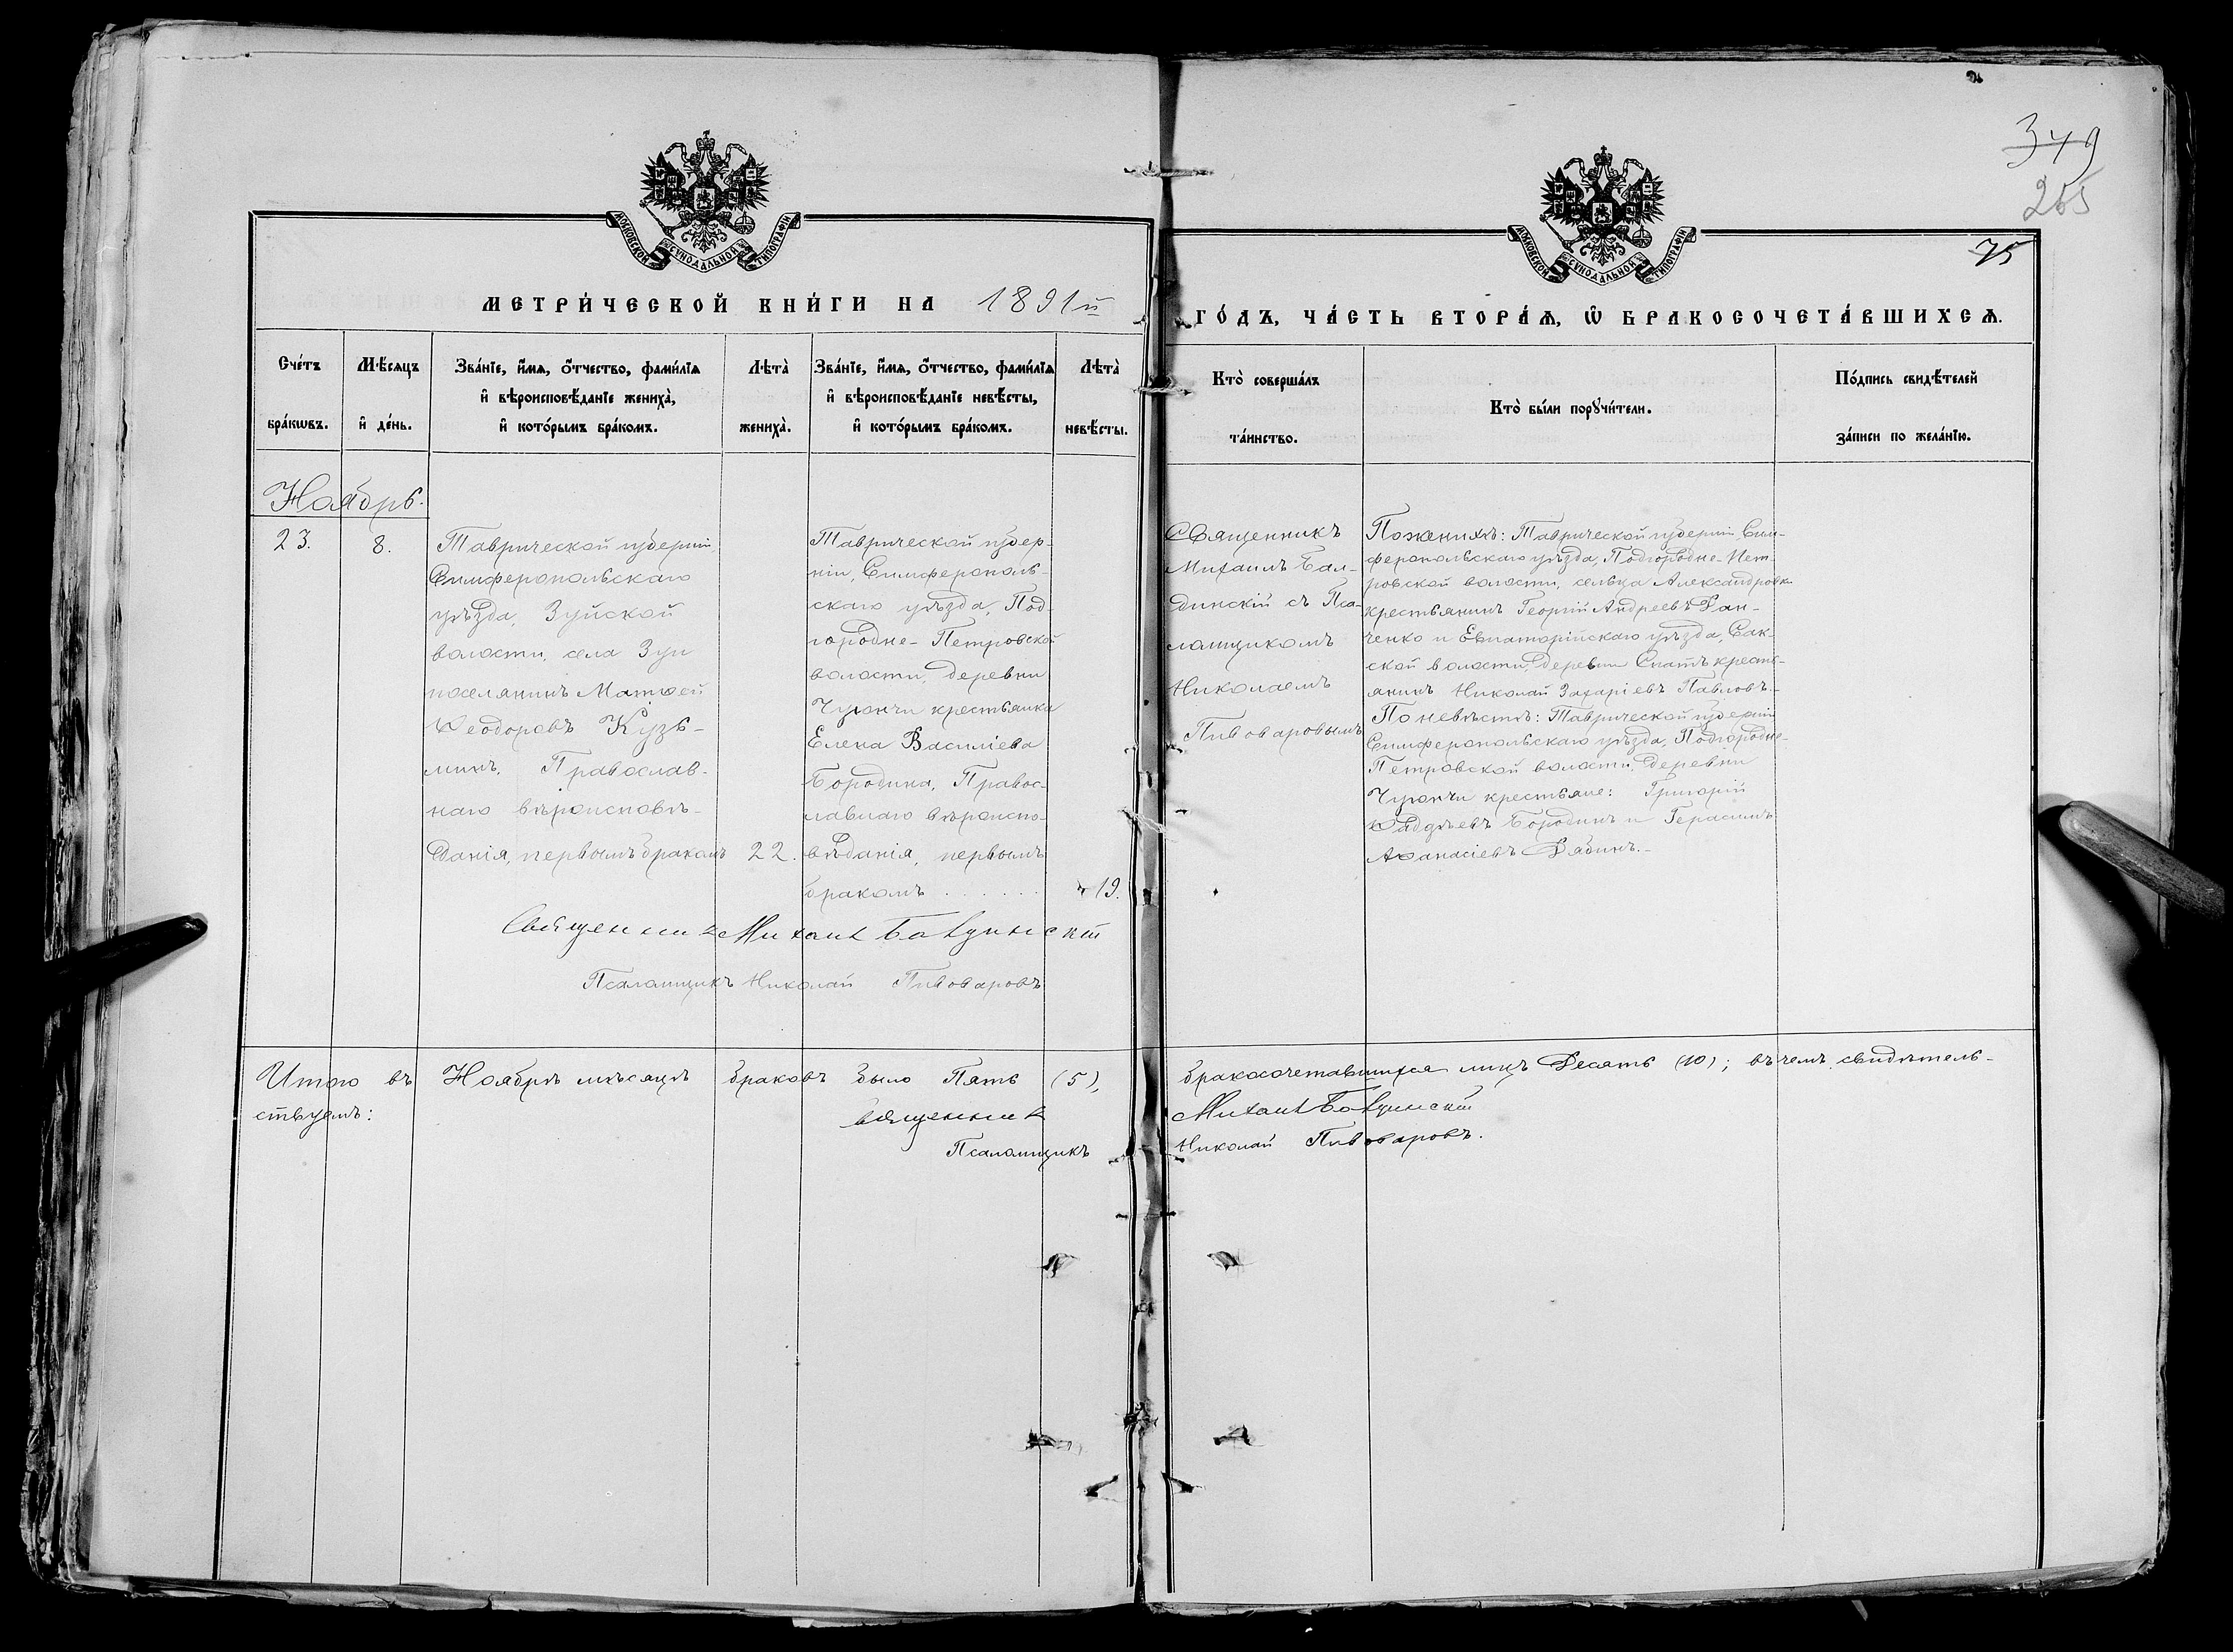 349
265
75
МОСКОВСКОЙ СУНОДАЛЬНОЙ ТИПОГРАФІИ
МОСКОВСКОЙ СУНОДАЛЬНОЙ ТИПОГРАФІИ
МЕТРИ́ЧЕСКОЙ КНИ́ГИ НА 1891й
ГО́ДЪ, ЧА́СТЬ ВТОРА́Ѧ, Ѽ БРАКОСОЧЕТА́ВШИХСѦ.
Сче́тъ
бра́кѡвъ.
Мѣ́сѧцъ
и҆ де́нь.
Зва́нїе, и҆́мѧ, ѻ҆́тчество, фами́лїѧ
и҆ вѣроисповѣ́данїе жениха̀,
и҆ кото́рымъ бра́комъ.
Лѣта̀
жениха̀.
Зва́нїе, и҆́мѧ, ѻ҆́тчество, фами́лїѧ
и҆ вѣроисповѣ́данїе невѣ́сты,
и҆ кото́рымъ бра́комъ.
Лѣта̀
невѣ́сты.
Кто̀ соверша́лъ
та́инство.
Кто̀ бы́ли порꙋчи́тели.
По́дпись свидѣ́телей
за́писи по жела́нїю.
Ноябрь.
23.
8.
Таврической губерніи,
Симферопольскаго
уѣзда, Зуйской
волости, села Зуи
поселянинъ Матѳей
Ѳеодоровъ Кузь-
минъ, Православ-
наго вѣроисповѣ-
данія, первымъ бракомъ
22.
Таврической губер-
ніи, Симферополь-
скаго уѣзда, Под-
городне-Петровской
волости, деревни
Чуюнчи крестьянка
Елена Василіева
Бородина, Правос-
лавнаго вѣроиспо-
вѣданія, первымъ
бракомъ . . . . . .
19.
Священникъ
Михаилъ Бал-
динскій съ Пса-
ломщикомъ
Николаемъ
Пивоваровымъ
По женихѣ: Таврической губерніи, Сим-
феропольскаго уѣзда, Подгородне-Пет-
ровской волости, сельца Александровки
крестьянинъ Георгій Андреевъ Ган-
ченко и Евпаторійскаго уѣзда, Сак-
ской волости, деревни Спатъ кресть-
янинъ Николай Захаріевъ Павловъ.-
По невѣстѣ: Таврической губерніи
Симферопольскаго уѣзда, Подгородне-
Петровской волости, деревни
Чуюнчи крестьяне: Григорій
Ѳаддѣевъ Бородинъ и Герасимъ
Аѳанасіевъ Рябинъ.-
Священникъ Михаил Балдинскій
Псаломщикъ Николай Пивоваровъ
Итого въ Ноябрѣ мѣсяцѣ браковъ было Пять (5),
бракосочетавшихся лицъ Десять (10); въ чемъ свидѣтель-
ствуемъ:
Священник Михаил Балдинскій
Псаломщикъ Николай Пивоваровъ.